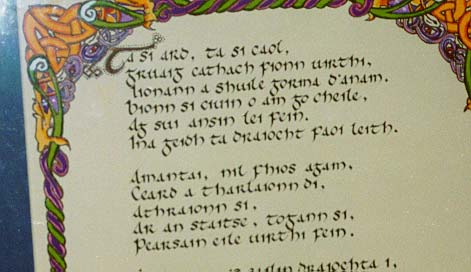 Ta si ard, ta si caol,
gruaig cathach fionn uirthi,
Lionann a shuile gorma d'anam.
Bionn si ciuin o am go cheile,
Ag sui ansin lei fein.
Ina geidh ta draiocht faoi leith.
Amantai, nil fhios agam,
Ceard a tharlaionn di,
Athraionn si,
Ar an staitse, togann si,
Pearsain eile uirthi fein.
draiochta i,